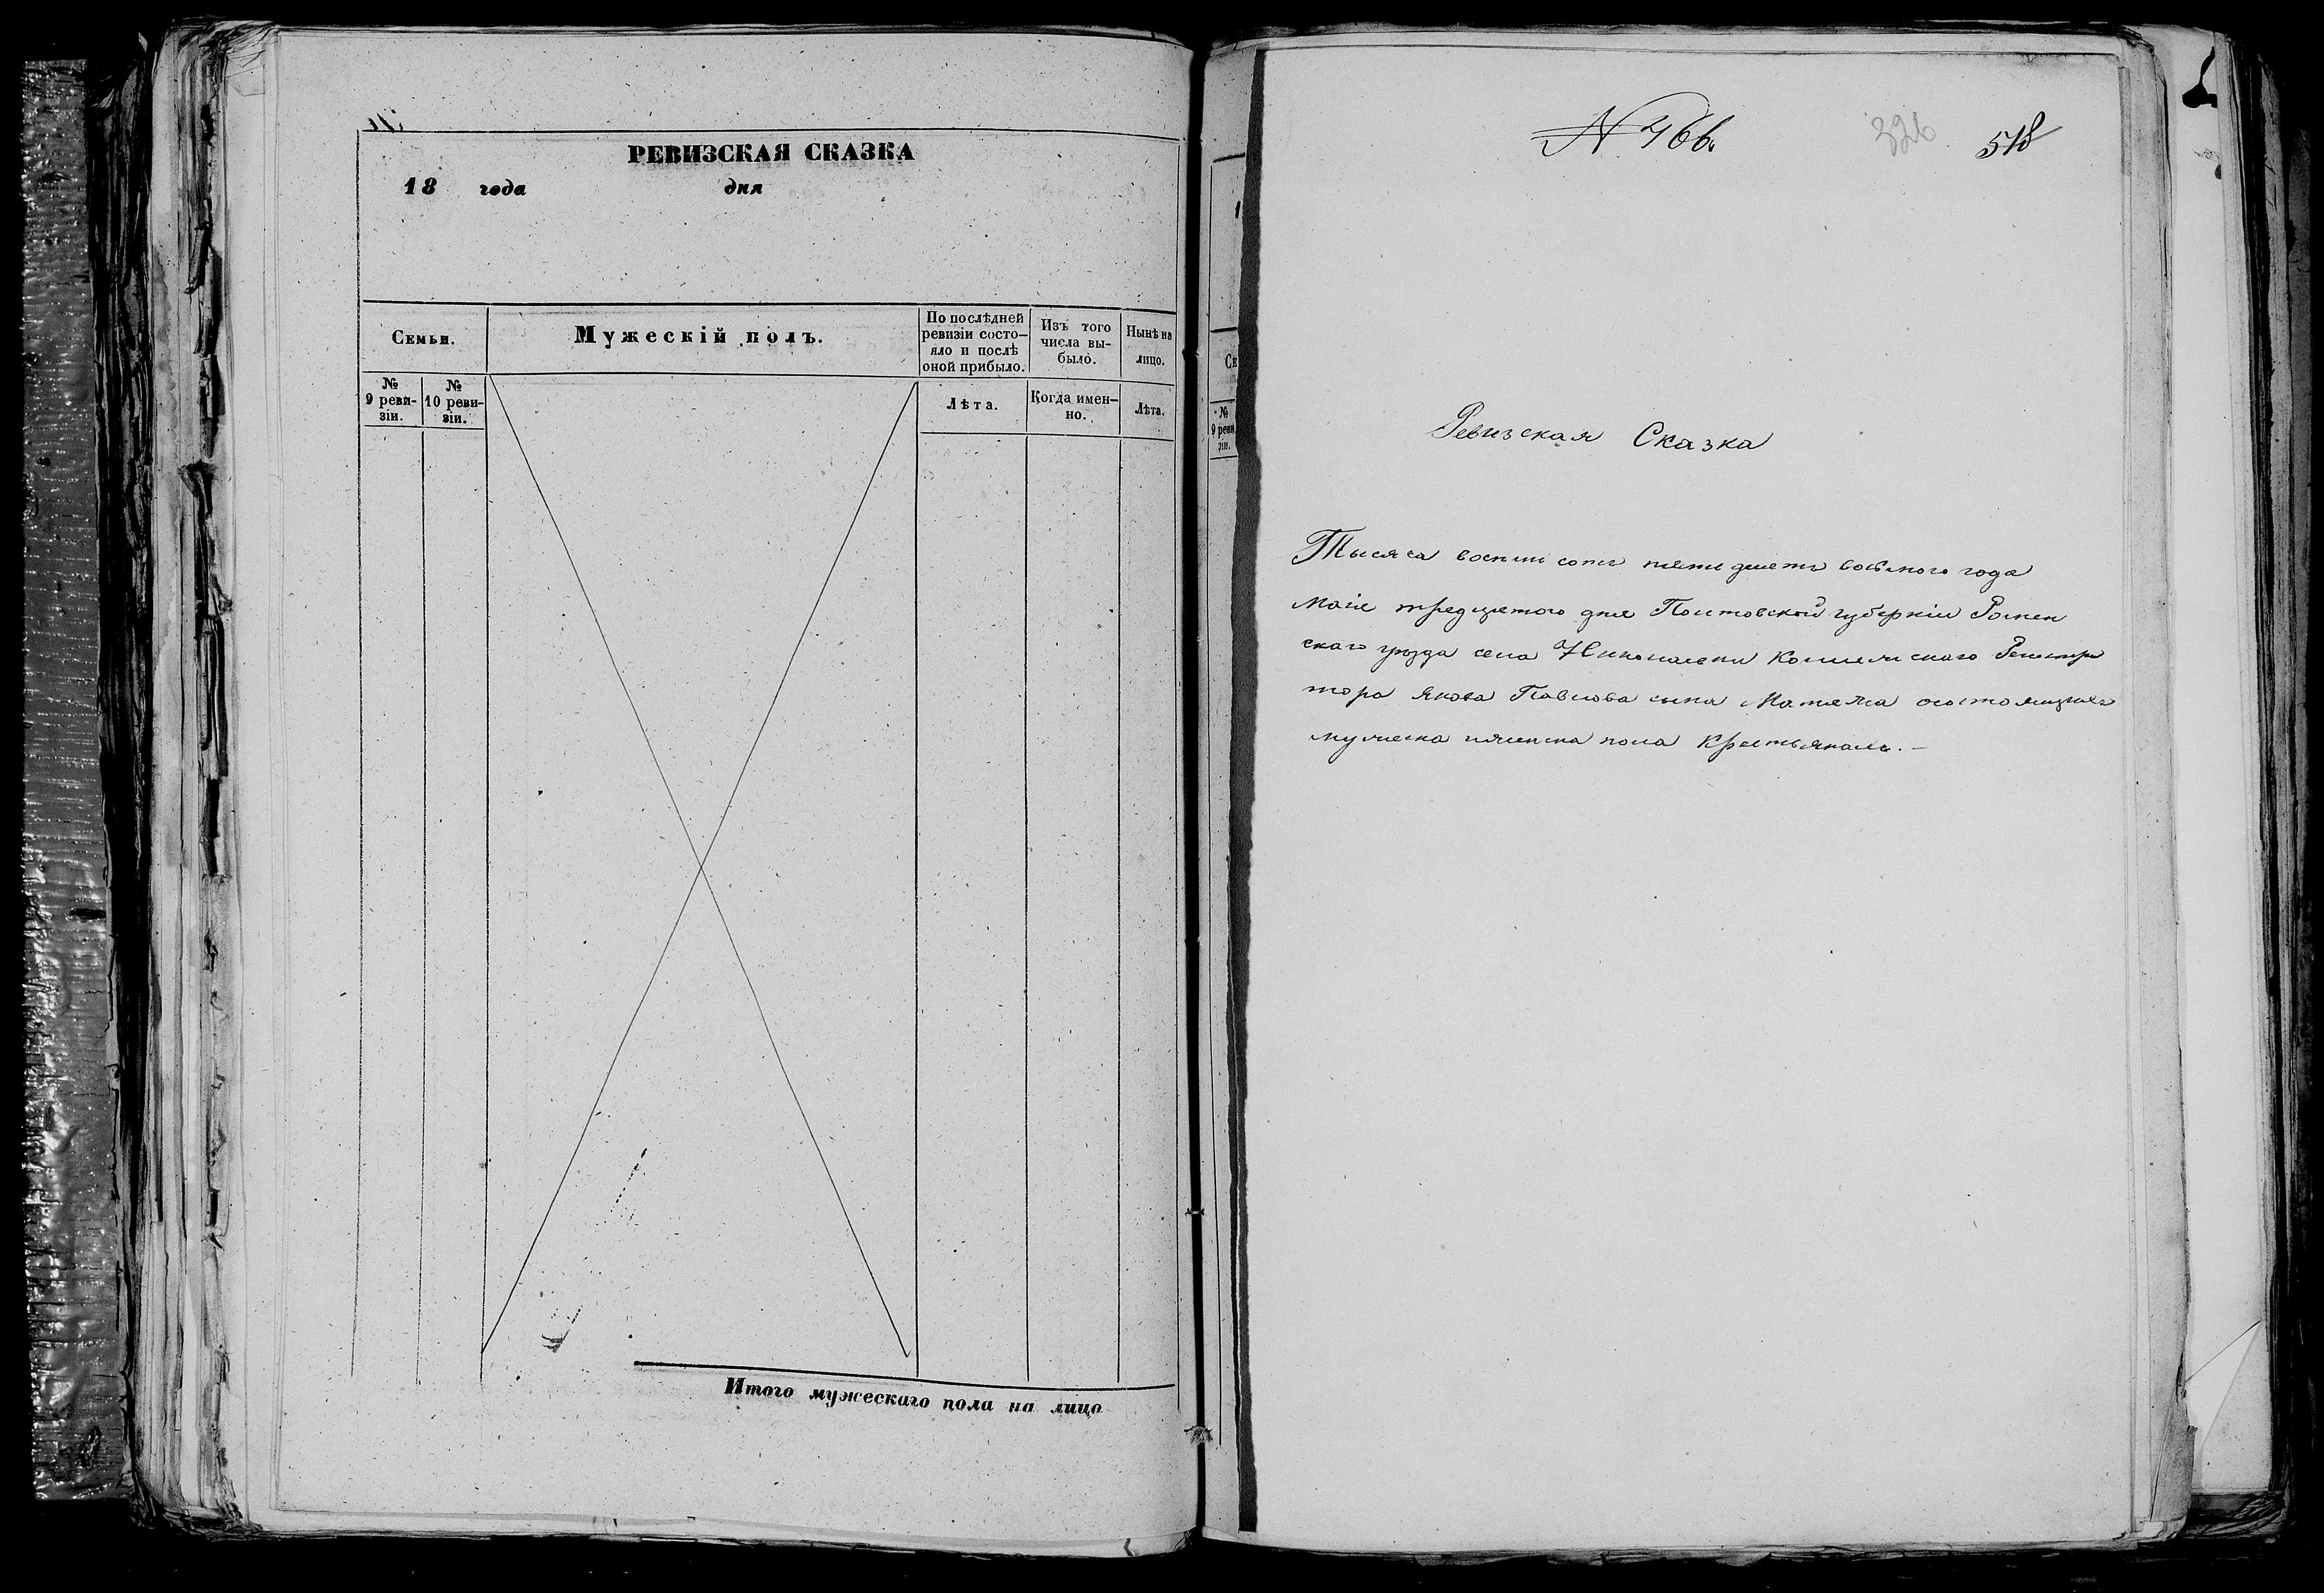 РЕВИЗСКАЯ СКАЗКА
18 года дня
Семьи.
Мужескій полъ.
По послѣдней ревизіи состо-
яло и послѣ оной прибыло.
Изъ того числа вы-
было.
Нынѣ на лицо.
№ 9 реви-
зіи.
№ 10 реви-
зіи.
Лѣта.
Когда имен-
но.
Лѣта.
Итого мужескаго пола на лицо
№ 466.
326
518
Ревизская Сказка
Тысяча восемь сотъ пятидесятъ восьмого года
Маія тредцятого дня Полтовской губерніи Ромен
скаго уезда села Николаевки Колежскаго Регистра
тора Якова Павлова сына состоящихъ
мужеска женска пола Крестьянахъ.-
№ 9 реви
зіи.